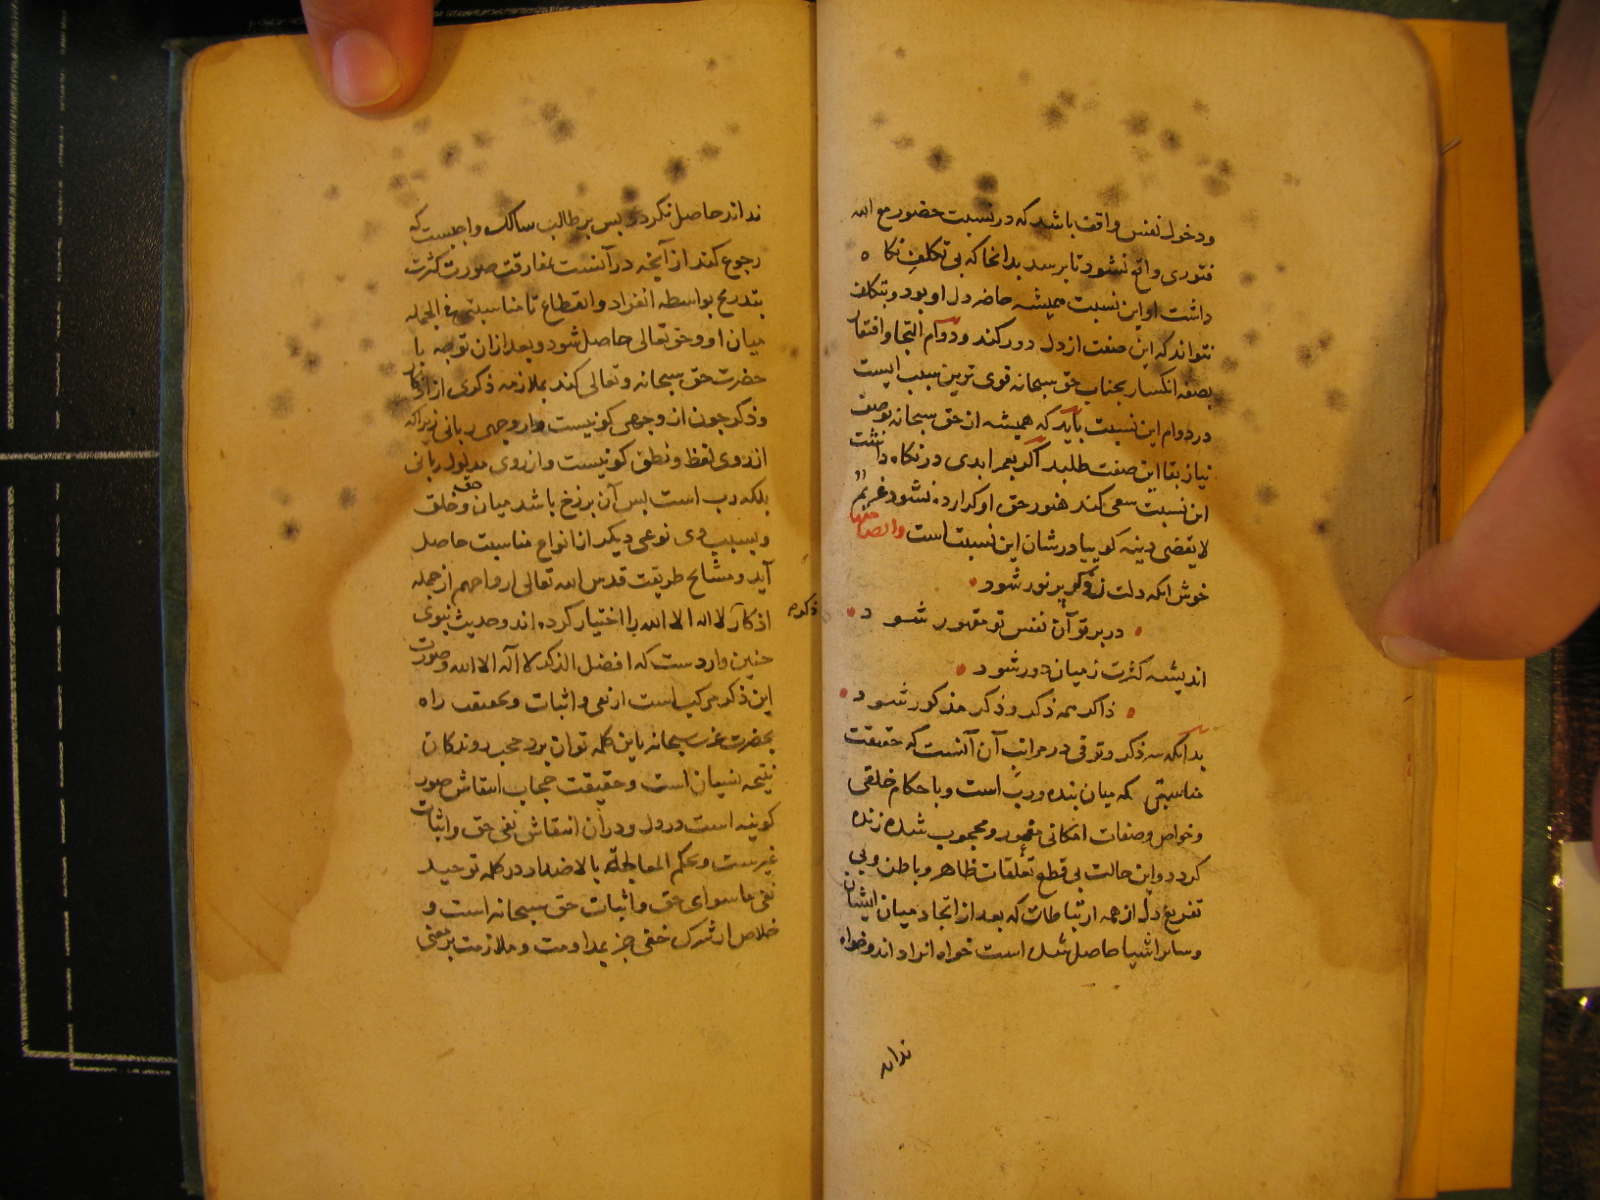 ودخول نفس واقف باشد که در نسبت حضور مع الله
فتوری واقع نشود تا برسد بدانجا که بی تکلف نکاه
داشت او این نسبت همیشه حاضر دل او بود و بتکلف
نتواند که این صفت از دل دور کند و دوام التجا و افتقار
بصفه انکسار بجناب حق سبحانه قوی ترین سبب ایست
در دوام این نسبت باید که همیشه از حق سبحانه بوصف
نیاز بقا این صفت طلبد اکر بعمر ابدی در نکاه داشت
این نسبت سعی کند هنوز حق او کزارده نشود غریم
لا یقضی دینه کوییا در شان این نسبت است وایضا منها
خوش انکه دلت ز ذکر پر نور شود
در پرتو آن نفس تو مقهور شود
اندیشه کثرت ز میان دور شود
ذاکر همه ذکر و ذکر مذکور شود
بدانکه سر ذکر و ترقی در مراتب آن آنست که حقیقت
مناسبتی که میان بنده و رب است و باحکام خلقی
وخواص وصفات امکانی مقهور و محجوب شده زنده
کردد و این حالت بی قطع تعلقات ظاهر و باطن و بی
تفریغ دل از همه ارتباطات که بعد از ایجاد میان ایشان
وسائر اشیا حاصل شده است خواه انرا دانند و خواه
ندانند
ندانند حاصل نکردد پس بر طالب سالک واجبست که
رجوع کند از آنچه در آنست بمفارقت صورت کثرت
بتدریج بواسطه انفراد و انقطاع تا مناسبتی فی الجمله
میان او و حق تعالی حاصل شود و بعد از ان توجه با
حضرت حق سبحانه و تعالی کند بملازمه ذکری از اذکار
و ذکر جون از وجهی کونیست و از وجهی ربانی زیرا که
از روی لفظ و نطق کونیست و از روی مدلول ربانی
بلکه رب است پس آن برزخ باشد میان حق و خلق
و بسبب وی نوعی دیکر از انواع مناسبت حاصل
آید و مشائخ طریقت قدس الله تعالی ارواحهم از جمله
اذکار ذکر لا اله الا الله را اختیار کرده اند و حدیث نبوی
جنین واردست که افضل الذکر لا اله الا الله و صورت
این ذکر مرکب است از نفی و اثبات و بحقیقت راه
بحضرت عزت سبحانه باین کلمه توان برد حجب روندکان
نتیجه نسیان است و حقیقت حجاب انتقاش صور
کونیه است در دل و در آن انتقاش نفی حق و اثبات
غیرست و بحکم المعالجة بالاضداد در کلمه توحید
نفی ماسوای حق و اثبات حق سبحانه است و
خلاص از شرک خفی جز بمداومت و ملازمت بر معنی